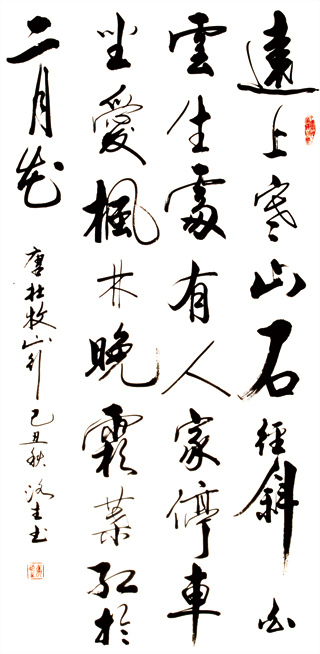 遠上寒山石徑斜白
雲生處有人家停車
坐愛楓林晚霜葉紅於
二月花
唐杜牧山行 己丑秋 洛生书